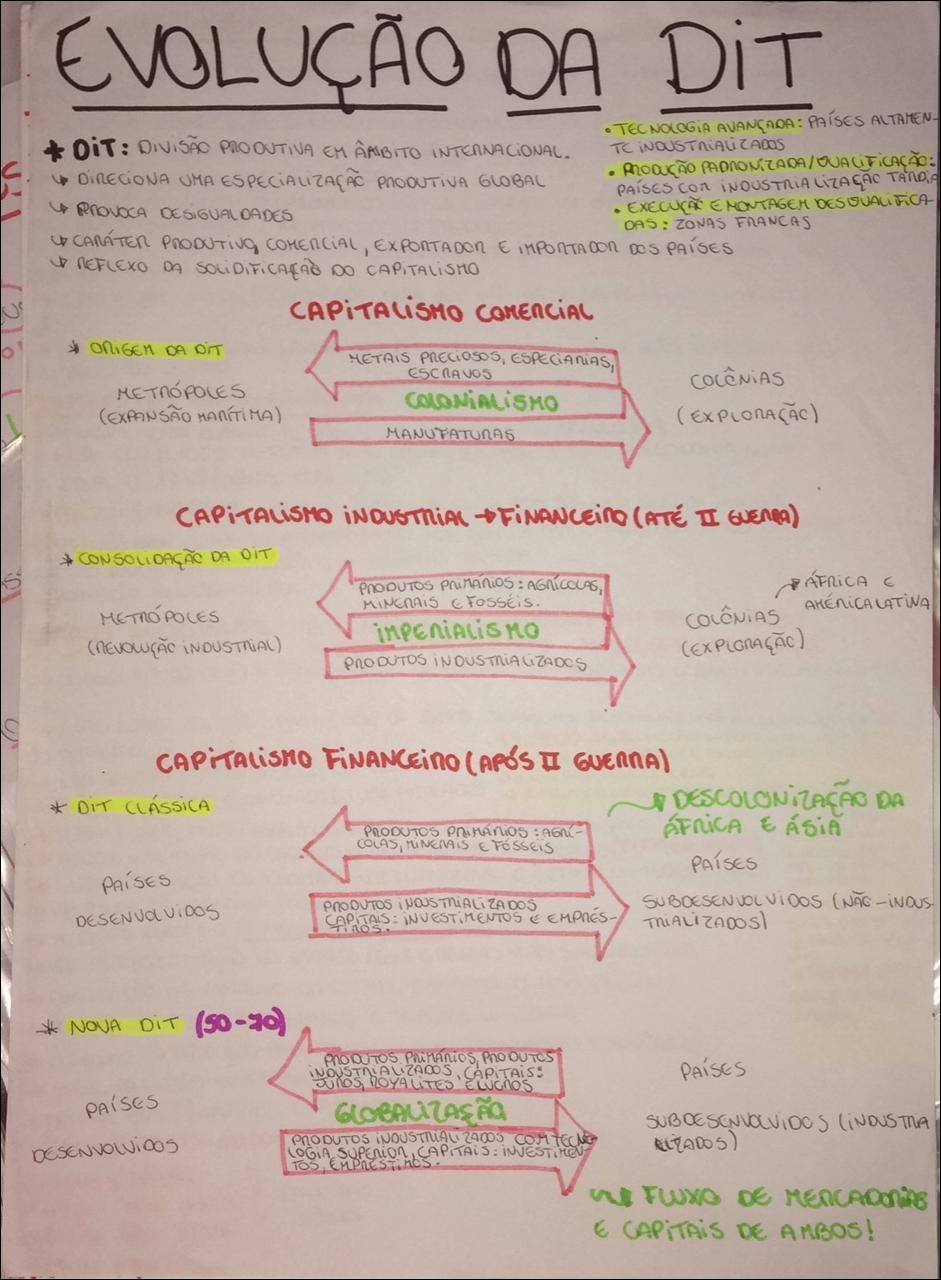 EVOLUÇÃO DA DiT
* DiT: DIVISÃO PRODUTIVA EM ÂMBITO INTERNACIONAL.
↳ DIRECIONA UMA ESPECIALIZAÇÃO PRODUTIVA GLOBAL
↳ PROVOCA DESIGUALDADES
↳ CARÁTER PRODUTIVO, COMERCIAL, EXPORTADOR E IMPORTADOR DOS PAÍSES
↳ REFLEXO DA SOLIDIFICAÇÃO DO CAPITALISMO
• TECNOLOGIA AVANÇADA: PAÍSES ALTAMEN-
TE INDUSTRIALIZADOS
• PRODUÇÃO PADRONIZADA/QUALIFICAÇÃO:
PAÍSES COM INDUSTRIALIZAÇÃO TARDIA
• EXECUÇÃO E MONTAGEM DESQUALIFICA-
DAS: ZONAS FRANCAS
CAPITALISMO COMERCIAL
* ORIGEM DA DIT
METRÓPOLES
(EXPANSÃO MARÍTIMA)
METAIS PRECIOSOS, ESPECIARIAS,
ESCRAVOS
COLONIALISMO
MANUFATURAS
COLÔNIAS
(EXPLORAÇÃO)
CAPITALISMO INDUSTRIAL → FINANCEIRO (ATÉ II GUERRA)
* CONSOLIDAÇÃO DA DIT
METRÓPOLES
(REVOLUÇÃO INDUSTRIAL)
PRODUTOS PRIMÁRIOS: AGRÍCOLAS,
MINERAIS E FOSSÉIS.
IMPERIALISMO
PRODUTOS INDUSTRIALIZADOS
ÁFRICA E
AMÉRICA LATINA
COLÔNIAS
(EXPLORAÇÃO)
CAPITALISMO FINANCEIRO (APÓS II GUERRA)
* DIT CLÁSSICA
PAÍSES
DESENVOLVIDOS
PRODUTOS PRIMÁRIOS: AGRÍ-
COLAS, MINERAIS E FÓSSEIS
PRODUTOS INDUSTRIALIZADOS
CAPITAIS: INVESTIMENTOS E EMPRÉS-
TIMOS.
DESCOLONIZAÇÃO DA
ÁFRICA E ÁSIA
PAÍSES
SUBDESENVOLVIDOS (NÃO-INDUS-
TRIALIZADOS)
* NOVA DIT (50-70)
PAÍSES
DESENVOLVIDOS
PRODUTOS PRIMÁRIOS, PRODUTOS
INDUSTRIALIZADOS, CAPITAIS:
JUROS, ROYALITES E LUCROS
GLOBALIZAÇÃO
PRODUTOS INDUSTRIALIZADOS COM TECNO-
LOGIA SUPERIOR, CAPITAIS: INVESTIMEN-
TOS, EMPRÉSTIMOS.
PAÍSES
SUBDESENVOLVIDOS (INDUSTRIA
LIZADOS)
FLUXO DE MERCADORIAS
E CAPITAIS DE AMBOS!